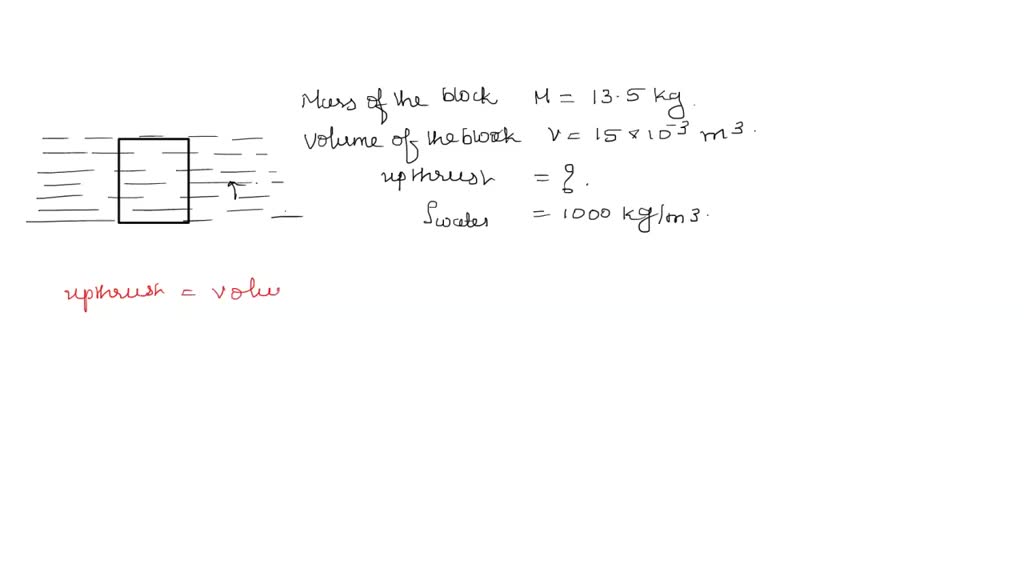 Mass of the block M = 13.5 kg.
Volume of the block V = 15 × 10⁻³ m³.
upthrust = ?.
ρwater = 1000 kg/m3.
upthrust = volu